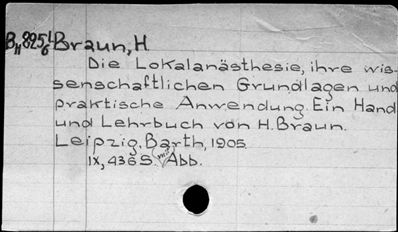 B 11 8256 Braun, H
Die Lokalanästhesie, ihre wis-
senschaftlichen Grundlagen und
praktische Anwendung. Ein Hand
und Lehrbuch von H. Braun.
Leipzig, Barth, 1905
IX, 436 S. mit Abb.